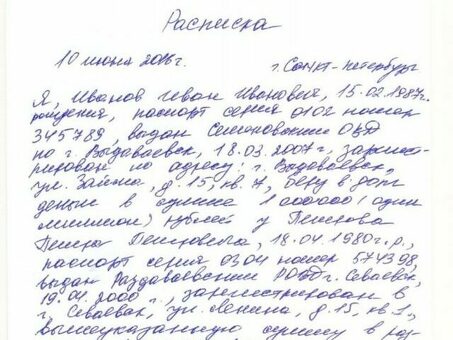 Расписка
10 июня 2016г. г. Санкт-Петербург
Я, Иванов Иван Иванович, 15.02.1987г.
рождения, паспорт серия 0102 номер
345789, выдан Семеновским ОВД
по г. Выдаваевск, 18.03.2007г, зареги-
рирован по адресу: г. Выдаваевск,
ул. Зайка, д. 15, кв. 7, беру в долг
деньги в сумме 1 000000 (один
миллион) рублей у Петрова
Петра Петровича, 18.04.1980г.р.,
паспорт серия 0304 номер 574398,
выдан Раздаваевским РОВД г. Севаевск,
19.04.2000г., зарегистрирован в
г. Севаевск, ул. Ленина, д. 15, кв. 1,
вышеуказанную сумму в раз-